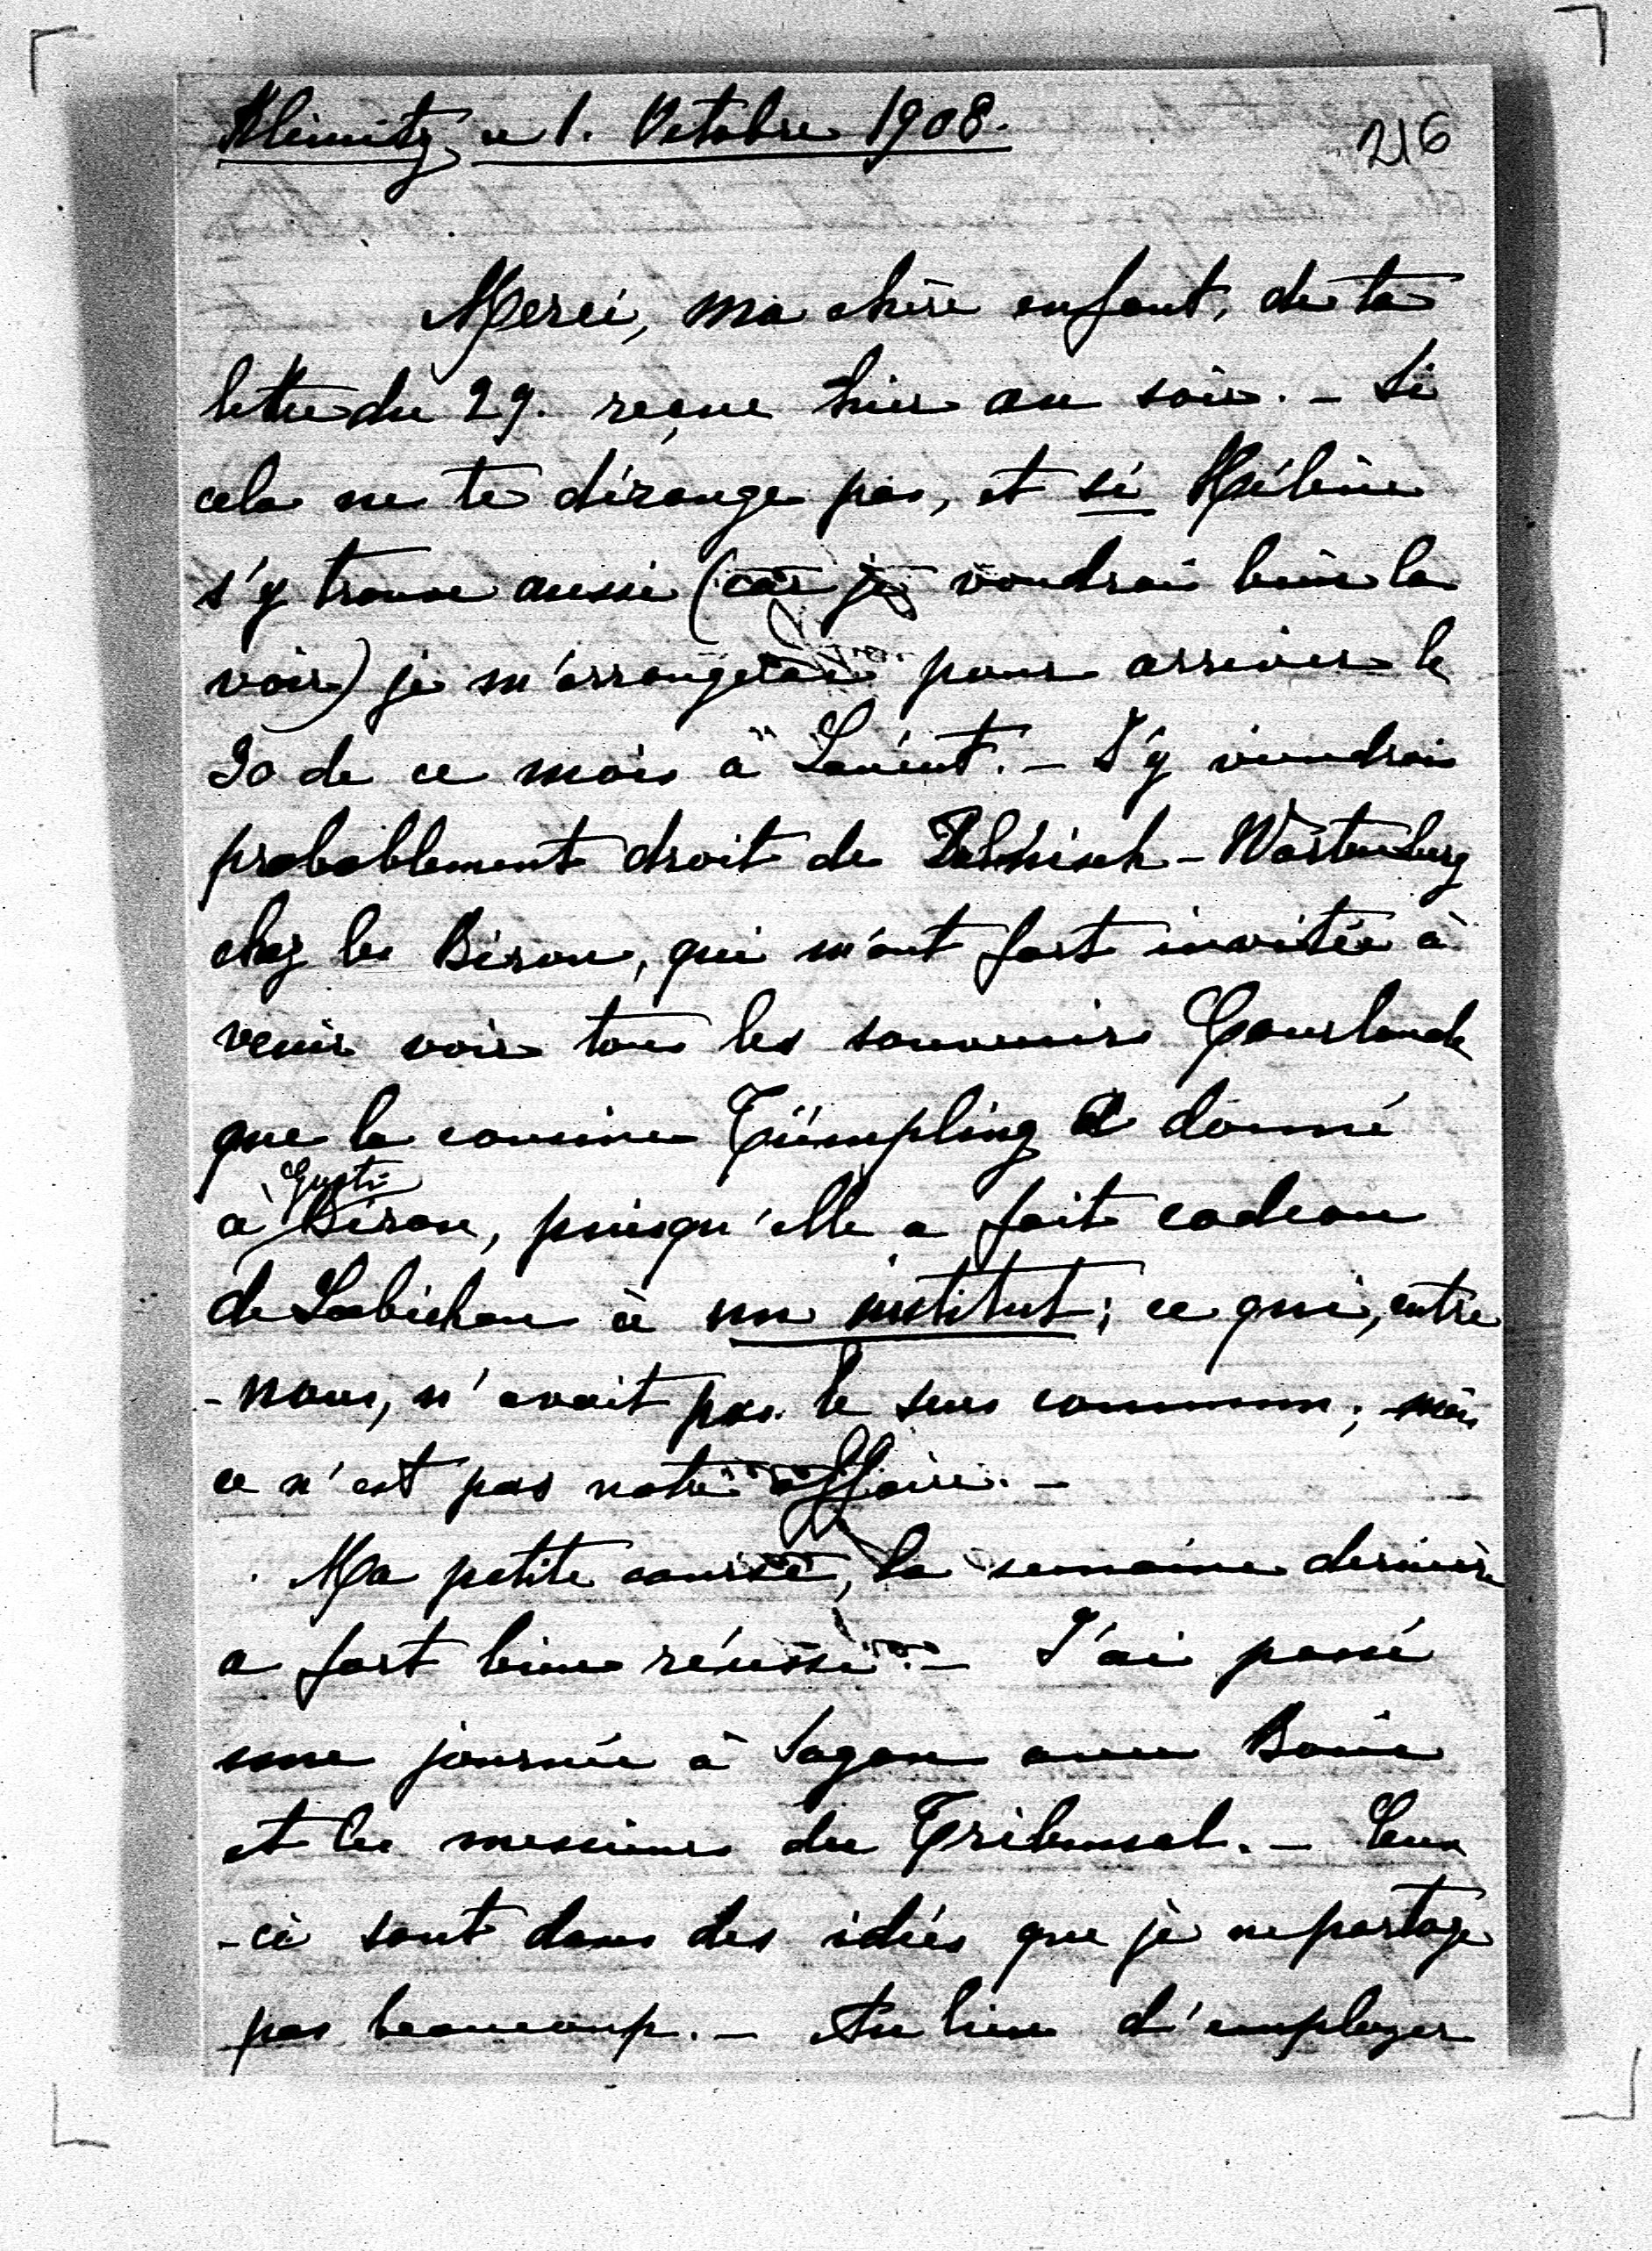 Kleinitz, ce 1. Octobre 1908.
216
Merci, ma chère enfant, de ta
lettre du 29. reçue hier au soir. - Si
cela ne te dérange pas, et si Hélène
s'y trouve aussi (car je voudrais bien la
voir) je m'arrangerais pour arriver le
30 de ce mois à Lanént. - J'y viendrais
probablement droit de Polnisch-Wartenberg
chez les Biron, qui m'ont fort invitée à
venir voir tous les souvenirs Courlande
que la cousine Tümpling a donné
à Gusti Biron, puisqu'elle a fait cadeau
de Löbichau à un institut; ce qui, entre
-nous, n'avait pas le sens commun; mais
ce n'est pas notre affaire. -
Ma petite course, la semaine dernière
a fort bien réussi. - J'ai passé
une journée à Sagan avec Boson
et les messieurs du Tribunal. - Ceux
-ci sont dans des idées que je ne partage
pas beaucoup. - Au lieu d'employer